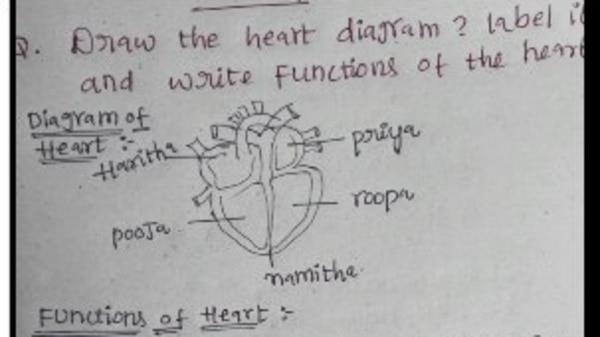 Q. Draw the heart diagram? label i
and write Functions of the heart
Diagram of
Heart :-
Haritha
priya
roopa
pooja
namitha
Functions of Heart :-